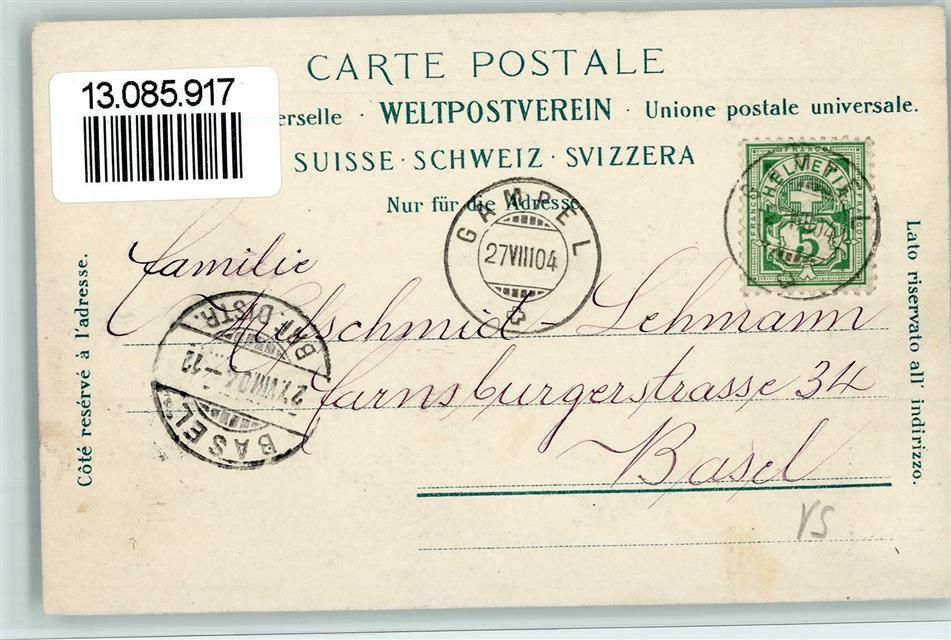 13.085.917
CARTE POSTALE
erselle · WELTPOSTVEREIN · Unione postale universale.
SUISSE · SCHWEIZ · SVIZZERA
Nur für die Adresse
FRANCO
HELVETIA
FRANCO FRANCO
5
GAMPEL
27 VIII 04
Côté reservé à l'adresse.
Lato riservato all' indirizzo.
Familie
Lehmann
Farnsburgerstrasse 34
Basel
BRF. DISTR.
27.VIII.04.-12
BASEL
VS